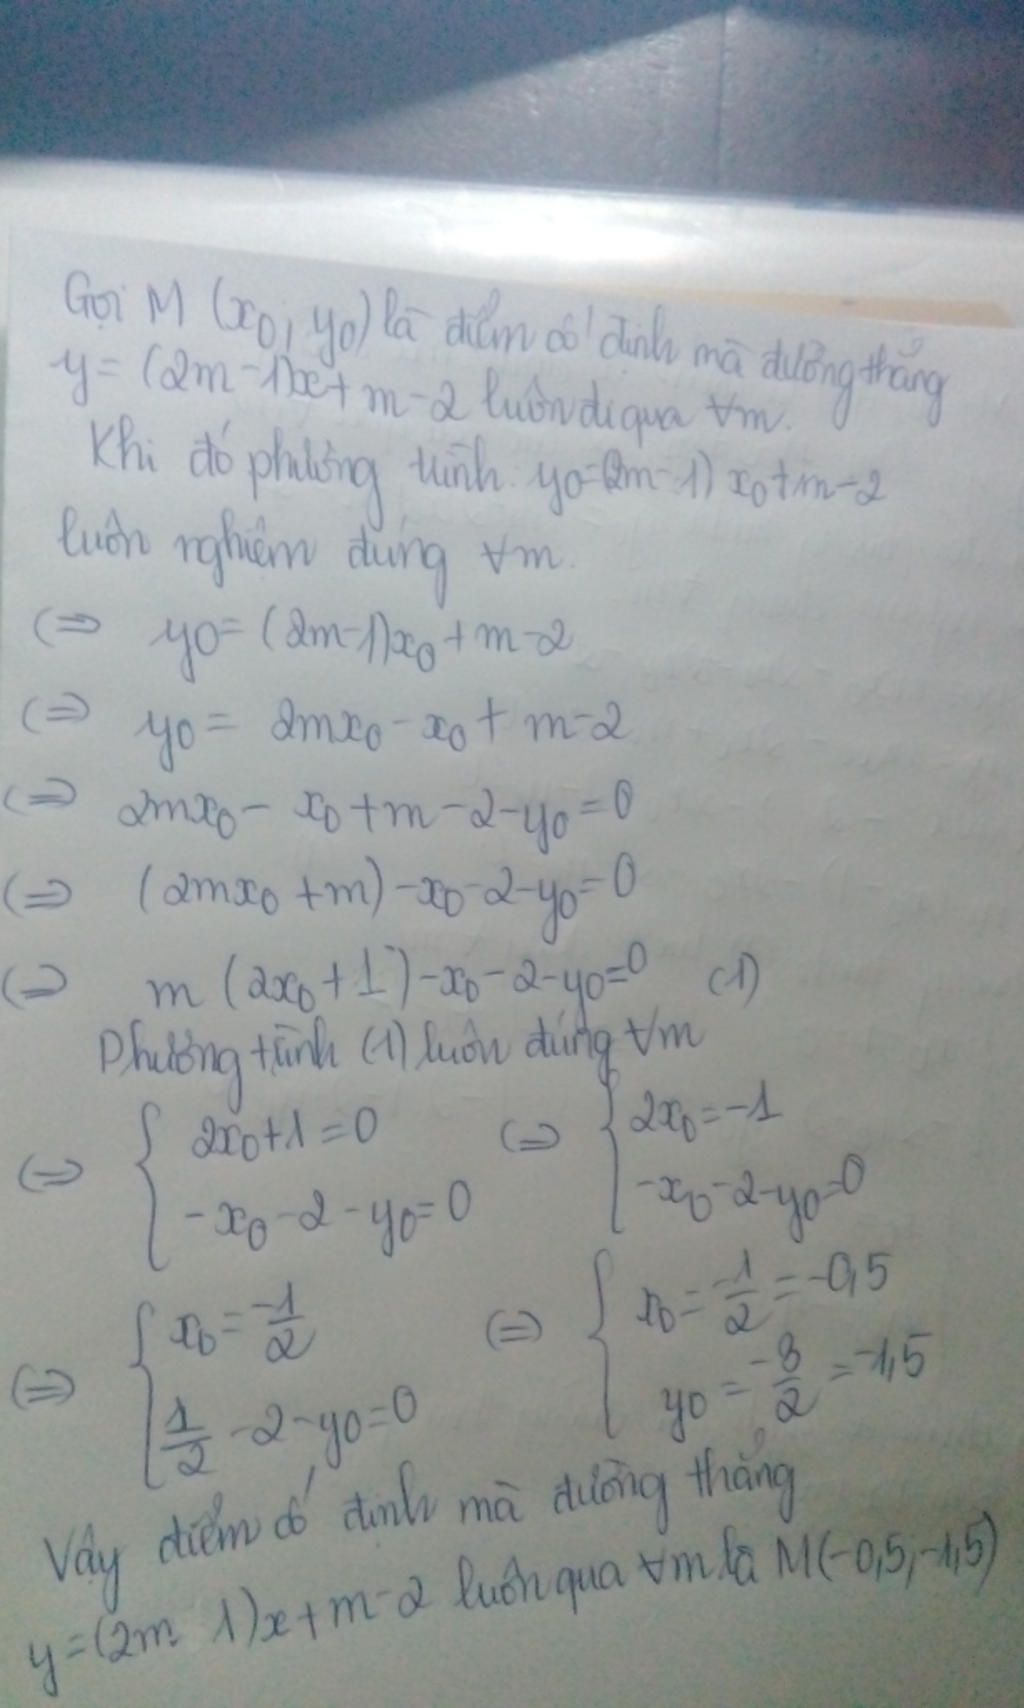 Gọi M (x₀; y₀) là điểm cố định mà đường thẳng
y = (2m - 1)x + m - 2 luôn đi qua ∀m.
Khi đó phương trình y₀ = (2m - 1) x₀ + m - 2
luôn nghiệm đúng ∀m.
(=) y₀ = (2m - 1)x₀ + m - 2
(=) y₀ = 2mx₀ - x₀ + m - 2
(=) 2mx₀ - x₀ + m - 2 - y₀ = 0
(=) (2mx₀ + m) - x₀ - 2 - y₀ = 0
(=) m (2x₀ + 1) - x₀ - 2 - y₀ = 0 (1)
Phương trình (1) luôn đúng ∀m
(=) { 2x₀ + 1 = 0 (=) { 2x₀ = -1
-x₀ - 2 - y₀ = 0 -x₀ - 2 - y₀ = 0
(=) { x₀ = -1/2 (=) { x₀ = -1/2 = -0,5
1/2 - 2 - y₀ = 0 y₀ = -3/2 = -1,5
Vậy điểm cố định mà đường thẳng
y = (2m 1)x + m - 2 luôn qua ∀m là M(-0,5; -1,5)